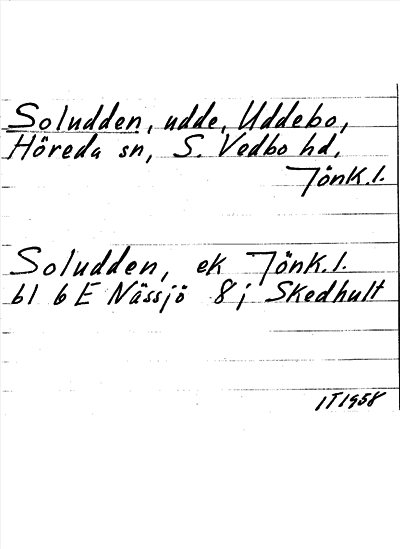 Soludden, udde, Uddebo,
Höreda sn, S. Vedbo hd,
Jönk.l.
Soludden, ek Jönk.l.
bl 6 E Nässjö 8 j Skedhult
IT1958